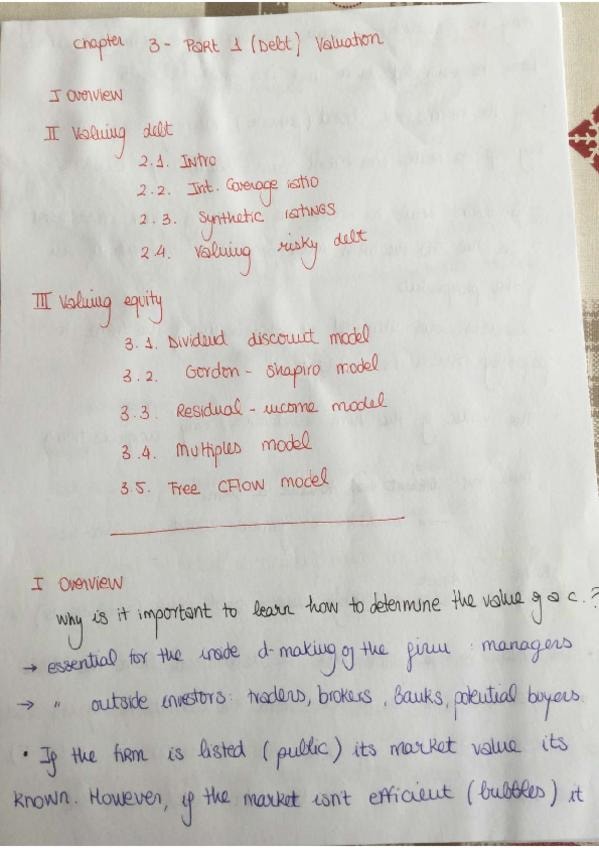 Chapter 3 - PART 1 (Debt) Valuation
I Overview
II Valuing debt
2.1. Intro
2.2. Int. Coverage ratio
2.3. Synthetic ratings
2.4. Valuing risky debt
III Valuing equity
3.1. Dividend discount model
3.2. Gordon - Shapiro model
3.3. Residual - income model
3.4. Multiples model
3.5. Free CFlow model
I Overview
why is it important to learn how to determine the value of a c.?
→ essential for the inside d-making of the firm : managers
→ " outside investors: traders, brokers, Banks, potential buyers.
• If the firm is listed (public) its market value its
known. However, if the market isn't efficient (bubbles) it